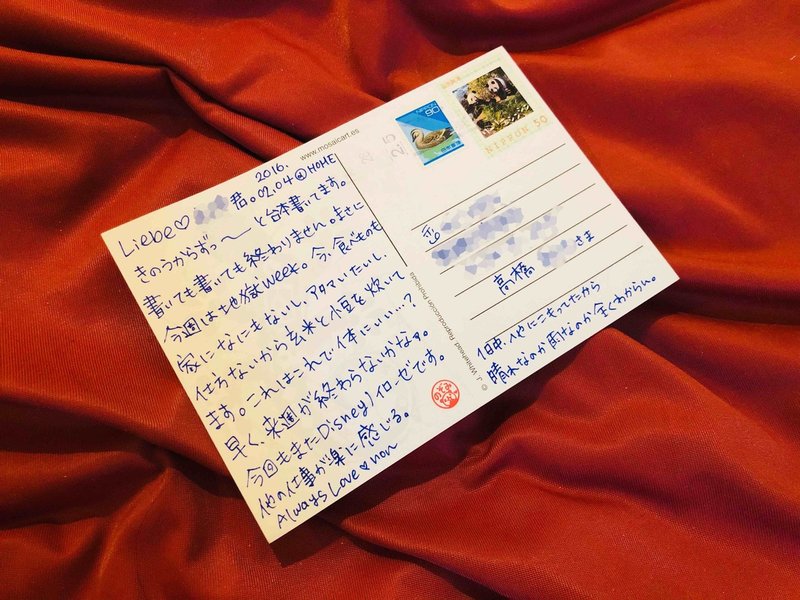 www.mosaicart.es
2016.
Liebe♡ 君。02.04@HOME
きのうからずっ〜〜と台本書いてます。
書いても書いても終わりません。まさに
今週は地獄week。今、食べものも
家になにもないし、アタマいたいし、
仕方ないから玄米と小豆を炊いて
ます。これはこれで体にいい…?
早く、来週が終わらないかなァ。
今回もまたDisneyノイローゼです。
他の仕事が楽に感じる。
Always Love♡non
© J. Whitehead Reproducción Prohibida
NIPPON 50
高橋 さま
1日中、地にこもってたから
晴れなのか雨なのか全くわからん。